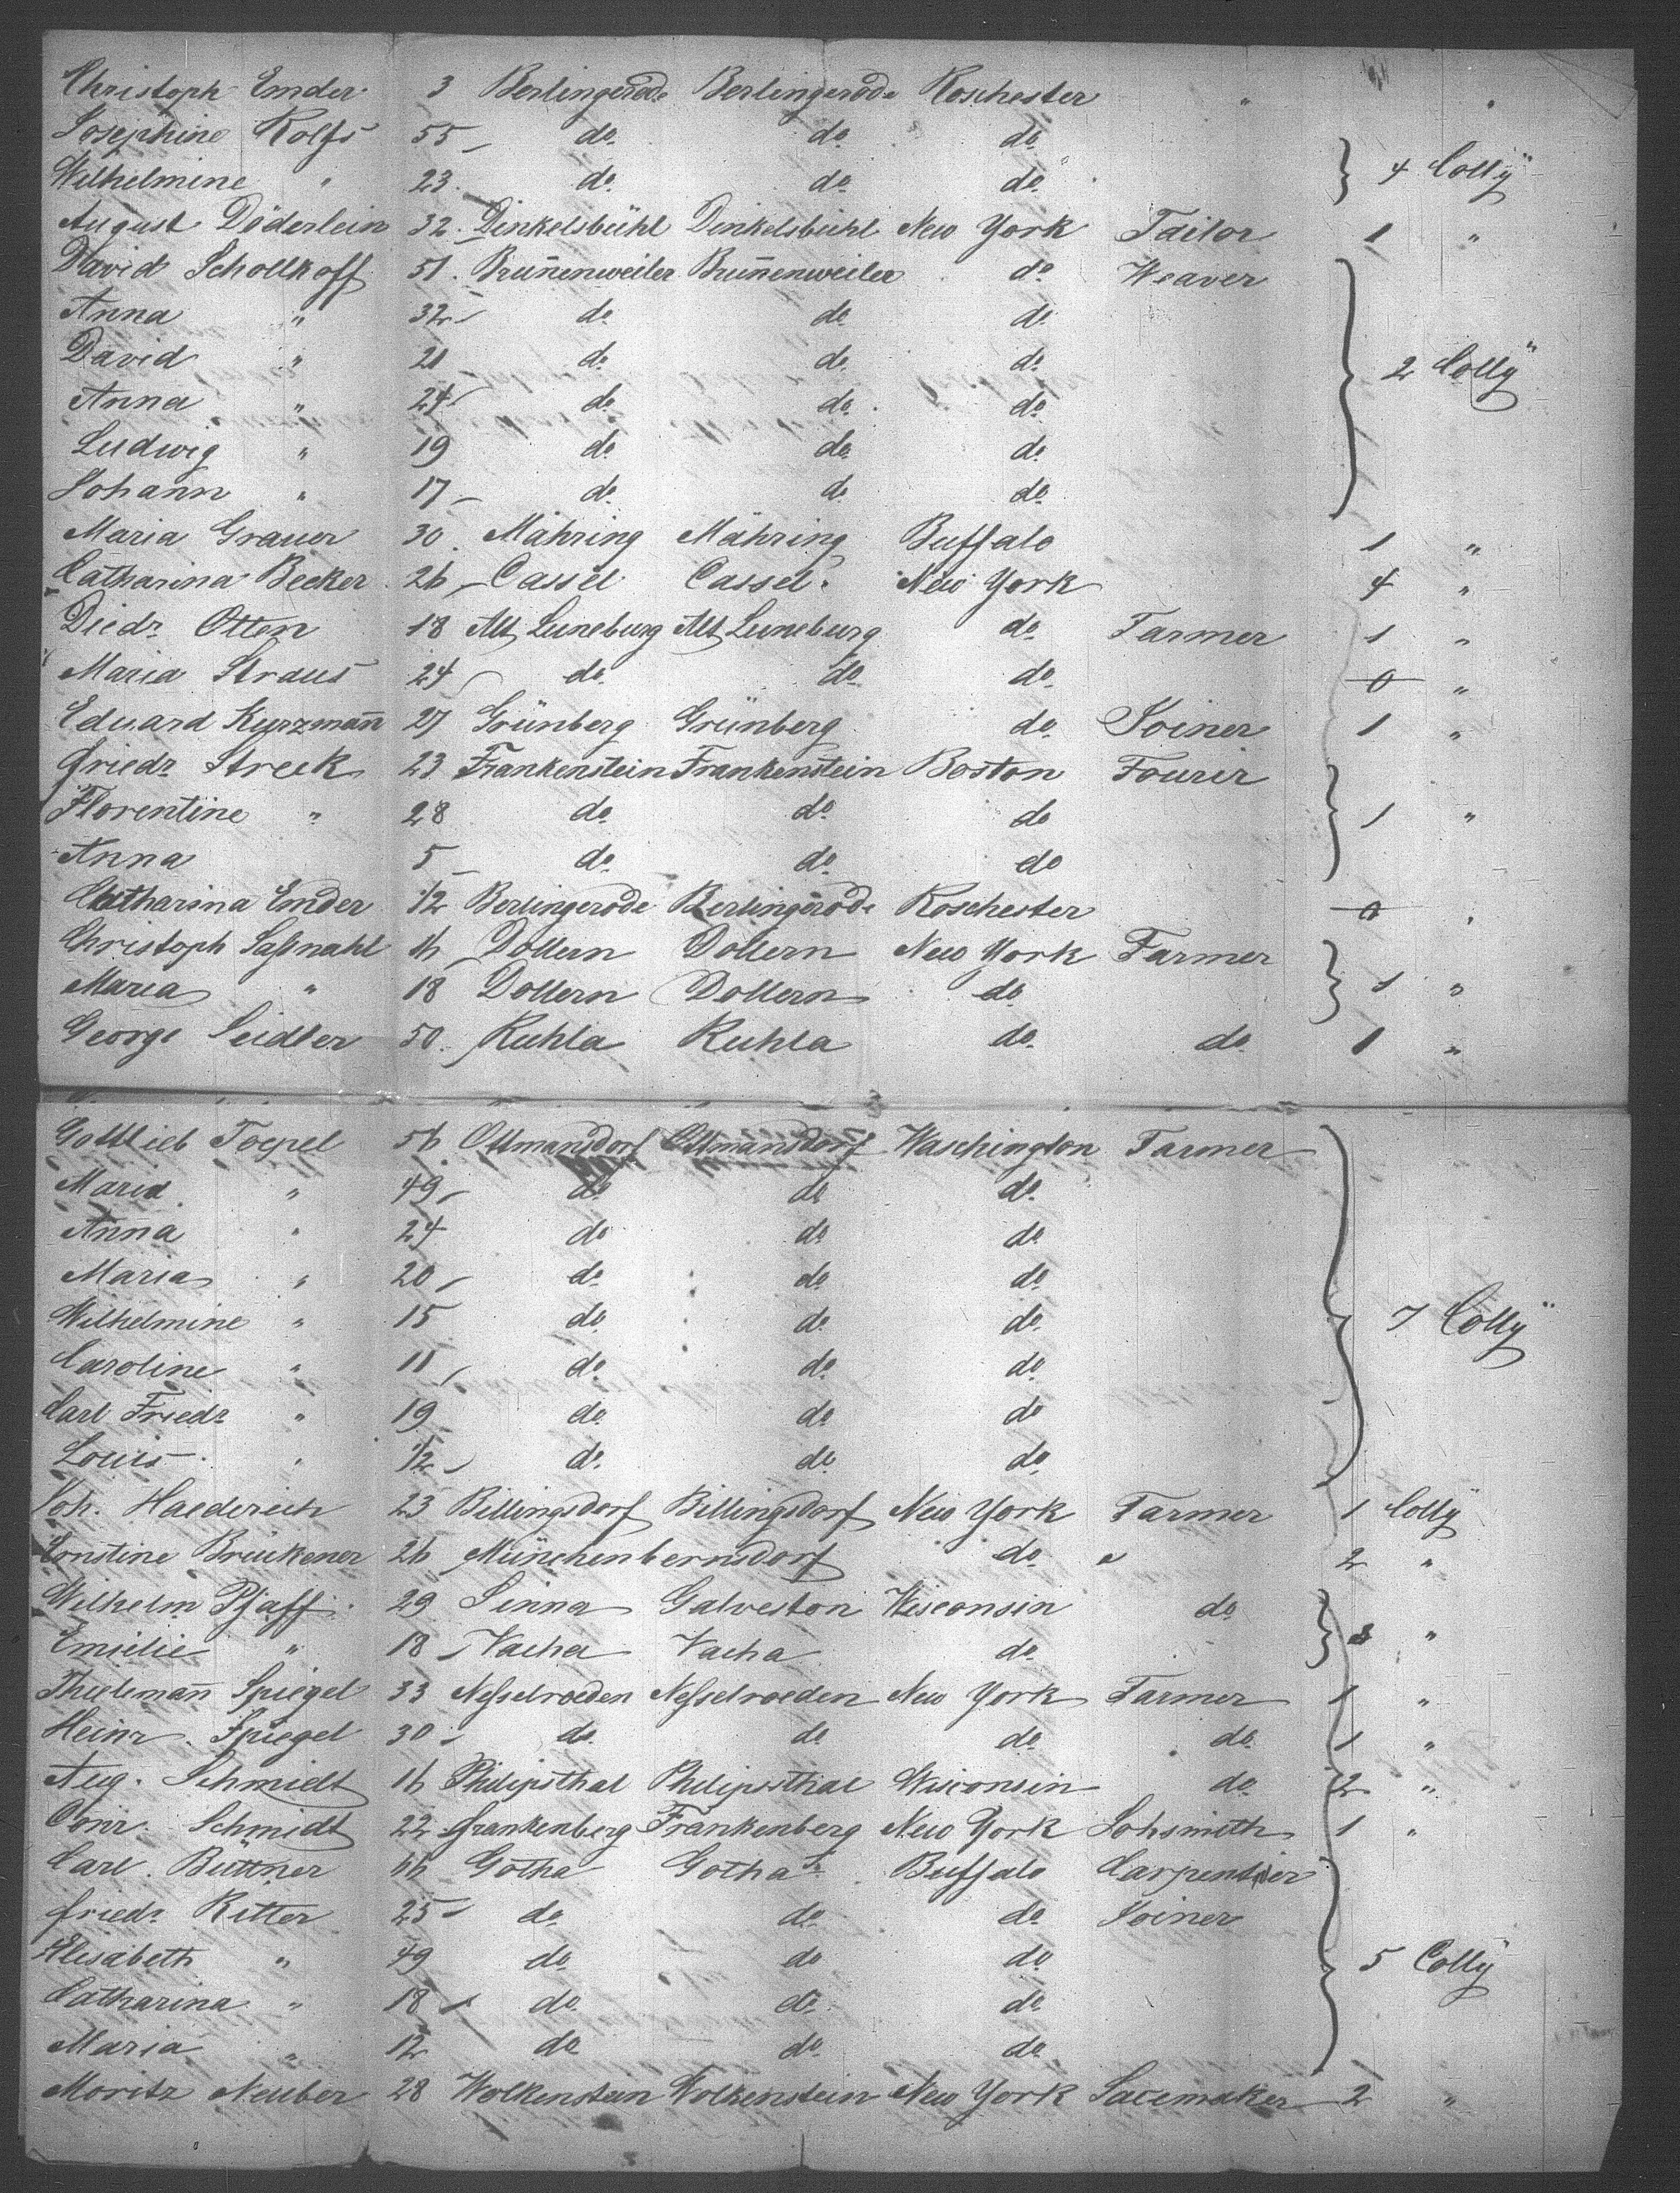 Christoph Emder 3 Berlingerode Berlingerode Roschester " "
Josephine Rolfs 55 do do do
Wilhelmine " 23 do do do } 4 Collÿ
August Döderlein 32 Dinkelsbühl Dinkelsbühl New York Tailor 1 "
David Schollkoff 51 Bruñenweiler Bruñenweiler do Weaver
Anna " 32 do do do
David " 21 do do do } 2 Collÿ
Anna " 24 do do do
Ludwig " 19 do do do
Johann " 17 do do do
Maria Grauer 30 Mähring Mähring Buffalo 1 "
Catharina Becker 26 Cassel Cassel New York 4 "
Diedr Otten 18 Alt Luneburg Alt Luneburg do Farmer 1 "
Maria Straus 24 do do do 0 "
Eduard Kurzmañ 27 Grünberg Grünberg do Joiner 1 "
Friedr Streek 23 Frankenstein Frankenstein Boston Fourir
Florentine " 28 do do do } 1 "
Anna 5 do do do
Catharina Emder 1/2 Berlingerode Berlingerode Roschester 0 "
Christoph Saßnahl 16 Dollern Dollern New York Farmer
Maria " 18 Dollern Dollern do } 1 "
George Seidler 50 Ruhla Ruhla do do 1 "
Gottlieb Toepel 56 Ottmansdorf Ottmansdorf Waschington Farmer
Maria " 49 do do do
Anna " 24 do do do
Maria " 20 do do do
Wilhelmine " 15 do do do } 7 Collÿ
Caroline " 11 do do do
Carl Friedr " 19 do do do
Louis " 1/2 do do do
Joh. Haederich 23 Billingsdorf Billingsdorf New York Farmer 1 Collÿ
Ernstine Brückener 26 Münchenbernsdorf do 2 "
Wilhelm Pfaff 29 Sinna Galveston Wisconsin do
Emilie " 18 Vacha Vacha do } "
Thielmañ Spiegel 33 Neßelroeden Neßelroeden New York Farmer 1 "
Heinr. Spiegel 30 do do do do 1 "
Aug. Schmidt 16 Philipsthal Philipsthal Wisconsin do 2 "
Conr. Schmidt 22 Frankenberg Frankenberg New York Lohsmith 1 "
Carl Büttner 66 Gotha Gotha Buffalo Carpentier
Friedr Ritter 25 do do do Joiner
Elisabeth " 49 do do do } 5 Collÿ
Catharina " 18 do do do
Maria " 12 do do do
Moritz Neuber 28 Wolkenstein Wolkenstein New York Lacemaker 2 "